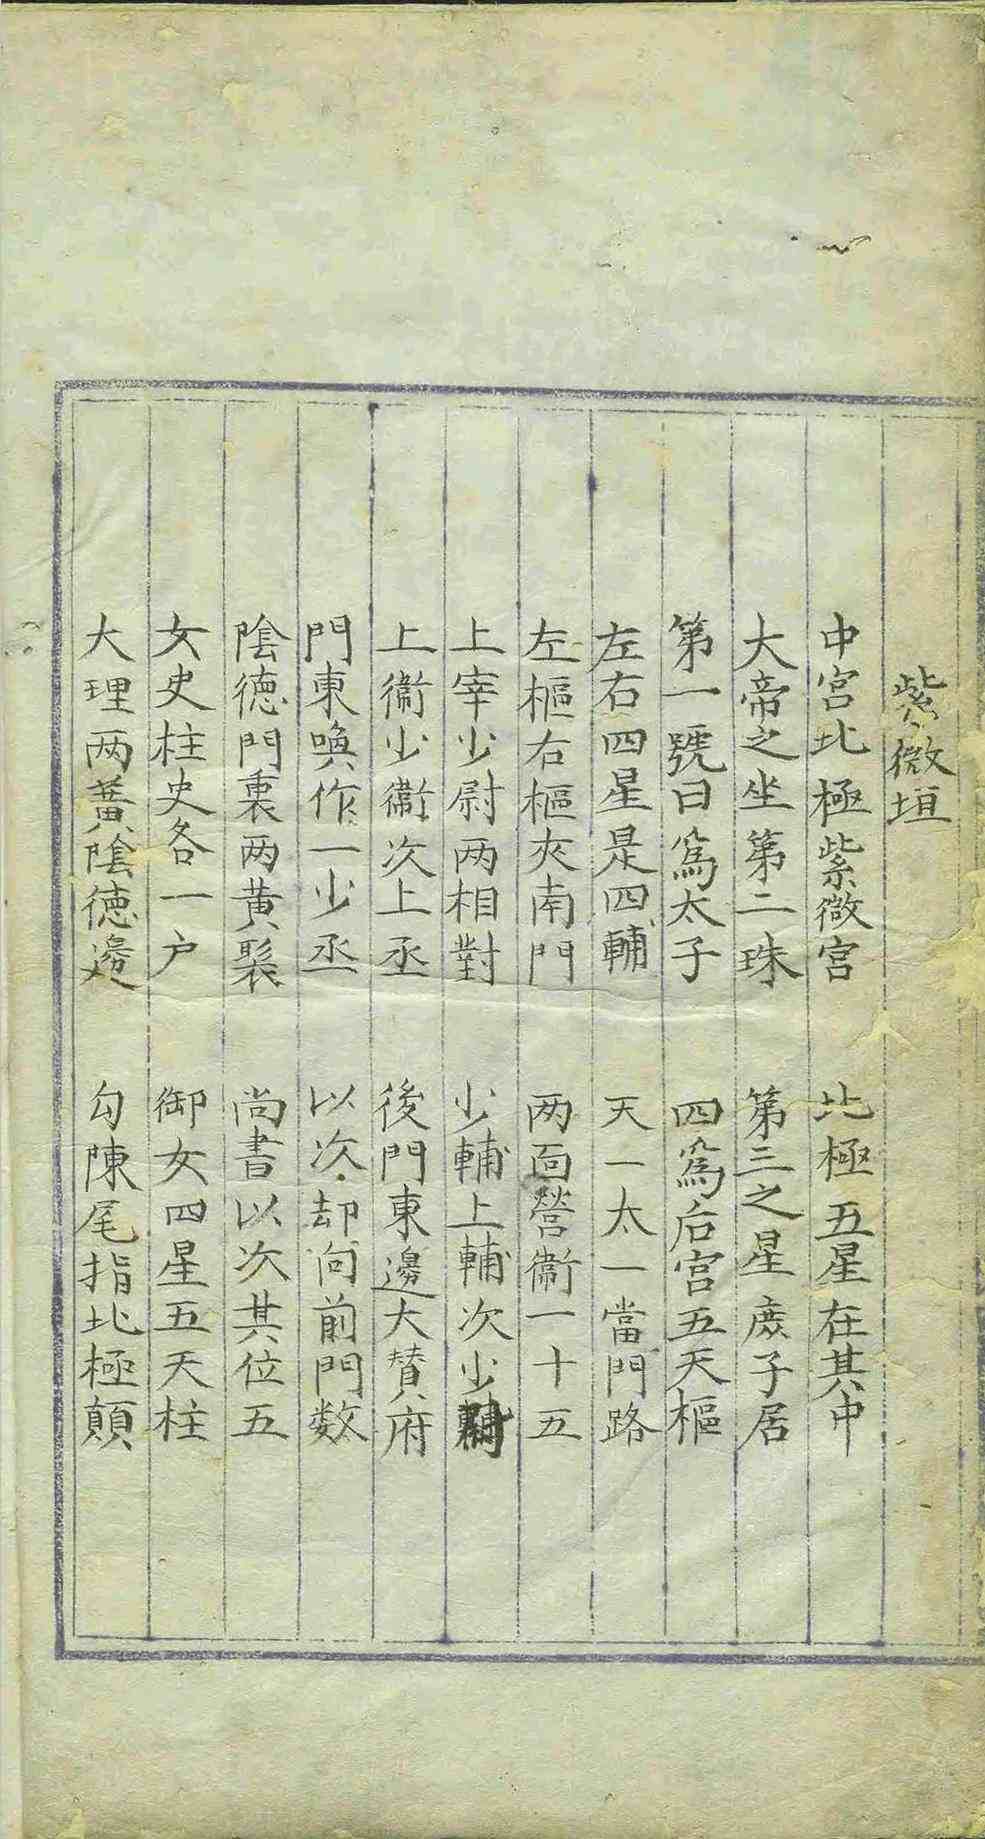 紫微垣
中宮北極紫微宮　北極五星在其中
大帝之坐第二珠　第三之星庻子居
第一號曰爲太子　四爲后宮五天樞
左右四星是四輔　天一太一當門路
左樞右樞夾南門　两面營衞一十五
上宰少尉两相對　少輔上輔次少輔
上衞少衞次上丞　後門東邊大賛府
門東喚作一少丞　以次却向前門数
陰徳門裏两黄聚　尚書以次其位五
女史柱史各一户　御女四星五天柱
大理两黃陰徳邊　勾陳尾指北極顛